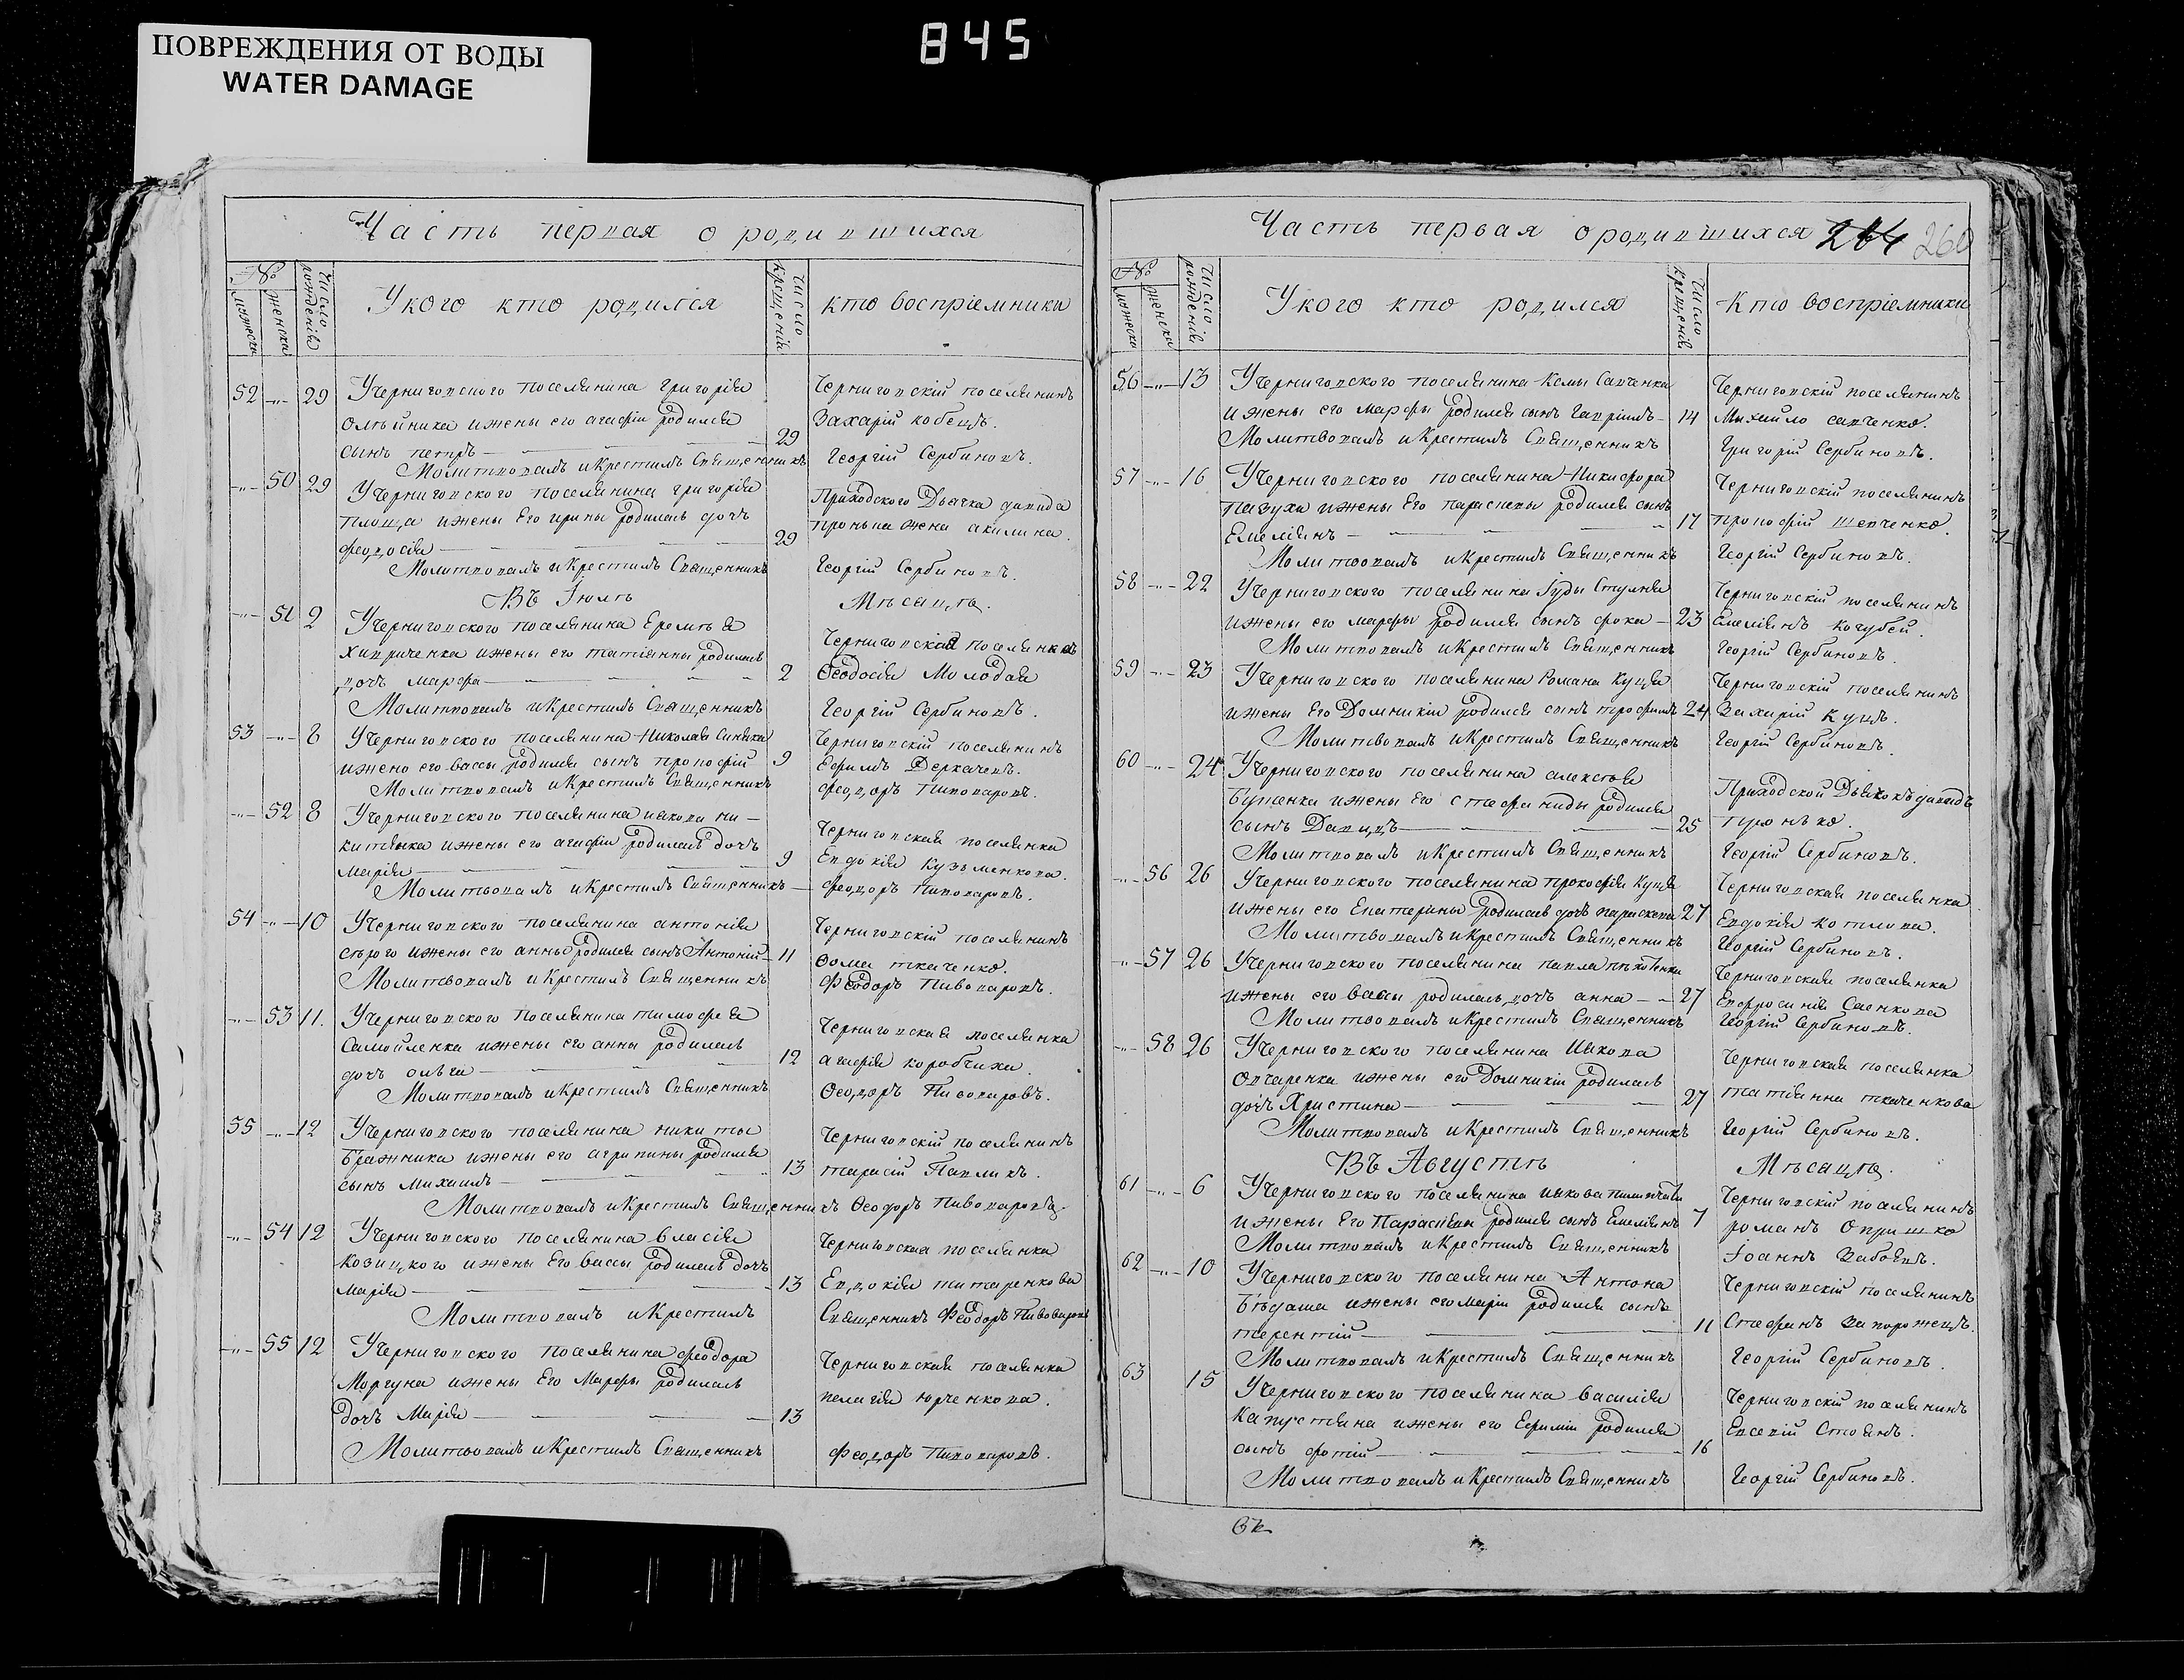 ПОВРЕЖДЕНИЯ ОТ ВОДЫ
WATER DAMAGE
845
Часть первая о родившихся
№
мужеска
женска
Число рожденія
У кого кто родился
Число крещенія
кто воспріемники
52 -"- 29 У Черниговского поселянина григорія
олѣйника и жены его агафіи родился
сынъ петръ 29
Молитвовалъ и Крестилъ Священникъ
Черниговскій поселянинъ
Захарій кобецъ.
Георгій Сербиновъ.
-"- 50 29 У Черниговского поселянина григорія
площа и жены Его ирины родилась дочь
феодосія 29
Молитвовалъ и Крестилъ Священникъ
Приходского Дьячка давида
пронька жена акилина.
Георгій Сербиновъ.
Въ Іюлѣ Мѣсяцѣ.
-"- 51 2 У Черниговского поселянина Еремѣя
хивриченка и жены его татіянны родилась
дочь марфа 2
Молитвовалъ и Крестилъ Священникъ
Черниговская поселянка
Феодосія Молодая
Георгій Сербиновъ.
53 -"- 8 У Черниговского поселянина Николая синяка
и жены его вассы родился сынъ прокофій 9
Молитвовалъ и Крестилъ Священникъ
Черниговскій поселянинъ
Ефимъ Деркачевъ.
феодоръ Пивоваровъ.
-"- 52 8 У Черниговского поселянина иякова ни-
китюка и жены его агафіи родилась дочь
марія 9
Молитвовалъ и Крестилъ Священникъ
Черниговская поселянка
Евдокія Кузьменкова.
феодоръ Пивоваровъ.
54 -"- 10 У Черниговского поселянина антонія
сѣрого и жены его анны родился сынъ Антоній 11
Молитвовалъ и Крестилъ Священникъ
Черниговскій поселянинъ
Фома ткаченко.
Феодоръ Пивоваровъ.
-"- 53 11. У Черниговского поселянина тимофея
Самойленка и жены его анны родилась
дочь ольга 12
Молитвовалъ и Крестилъ Священникъ
Черниговская поселянка
агафія коробчиха.
Феодоръ Пивоваровъ.
55 -"- 12 У Черниговского поселянина никиты
бражника и жены его агрипины родился
сынъ михаилъ 13
Молитвовалъ и Крестилъ Священникъ Феодоръ Пивоваровъ.
Черниговскій поселянинъ
тарасій Павликъ.
-"- 54 12 У Черниговского поселянина власія
козицкого и жены Его вассы родилась дочь
марія 13
Молитвовалъ и Крестилъ
Черниговская поселянка
Евдокія титаренкова
Священникъ Феодоръ Пивоваровъ
-"- 55 12 У Черниговского поселянина феодора
Моргуна и жены Его Марфы родилась
дочь Марія 13
Молитвовалъ и Крестилъ Священникъ
Черниговская поселянка
пелагія юрченкова.
Феодоръ Пивоваровъ.
Часть первая о родившихся 264 260
№
мужеска
женска
Число рожденія
У кого кто родился
Число крещенія
Кто воспріемники
56 -"- 13 У Черниговского поселянина Козмы Савченка
и жены его марфы родился сынъ гавріилъ 14
Молитвовалъ и Крестилъ Священникъ
Черниговскій поселянинъ
Михайло савченко.
Григорій Сербиновъ.
57 -"- 16 У Черниговского поселянина Никифора
пазуха и жены Его парасковы родился сынъ
Емеліянъ 17
Молитвовалъ и Крестилъ Священникъ
Черниговскій поселянинъ
прокофій шевченко.
Георгій Сербиновъ.
58 -"- 22 У Черниговского поселянина Іуды Ступня
и жены его марфы родился сынъ фока 23
Молитвовалъ и Крестилъ Священникъ
Черниговскій поселянинъ
Емеліянъ кочубей.
Георгій Сербиновъ.
59 -"- 23 У Черниговского поселянина Романа Куция
и жены Его Домникіи родился сынъ трофимъ 24
Молитвовалъ и Крестилъ Священникъ
Черниговскій поселянинъ
Захарій Куцъ.
Георгій Сербиновъ.
60 -"- 24 У Черниговского поселянина алексѣя
Буженка и жены Его стефаниды родился
сынъ Давидъ 25
Молитвовалъ и Крестилъ Священникъ
Приходской Дьячокъ давидъ
пронько.
Георгій Сербиновъ.
-"- 56 26 У Черниговского поселянина прокофія Куця
и жены его Екатерины родилась дочь параскева 27
Молитвовалъ и Крестилъ Священникъ
Черниговская поселянка
Евдокія котлова.
Георгій Сербиновъ.
-"- 57 26 У Черниговского поселянина павла
и жены его вассы родилась дочь анна 27
Молитвовалъ и Крестилъ Священникъ
Черниговская поселянка
Евфросинія Саенкова
Георгій Сербиновъ.
-"- 58 26 У Черниговского поселянина Иякова
Овчаренка и жены его Домникіи родилась
дочь Христина 27
Молитвовалъ и Крестилъ Священникъ
Черниговская поселянка
татіянна ткаченкова
Георгій Сербиновъ.
Въ Августѣ Мѣсяцѣ.
61 -"- 6 У Черниговского поселянина иякова
и жены Его Параскевы родился сынъ Емеліянъ 7
Молитвовалъ и Крестилъ Священникъ
Черниговскій поселянинъ
романъ Опришко
Іоаннъ Забоевъ.
62 -"- 10 У Черниговского поселянина Антона
бѣдаша и жены его маріи родился сынъ
терентій 11
Молитвовалъ и Крестилъ Священникъ
Черниговскій поселянинъ
Стефанъ Запорожецъ.
Георгій Сербиновъ.
63 15 У Черниговского поселянина василія
капустяна и жены его Ефиміи родился
сынъ фотій 16
Молитвовалъ и Крестилъ Священникъ
Черниговскій поселянинъ
Евсевій Стоянъ.
Георгій Сербиновъ.